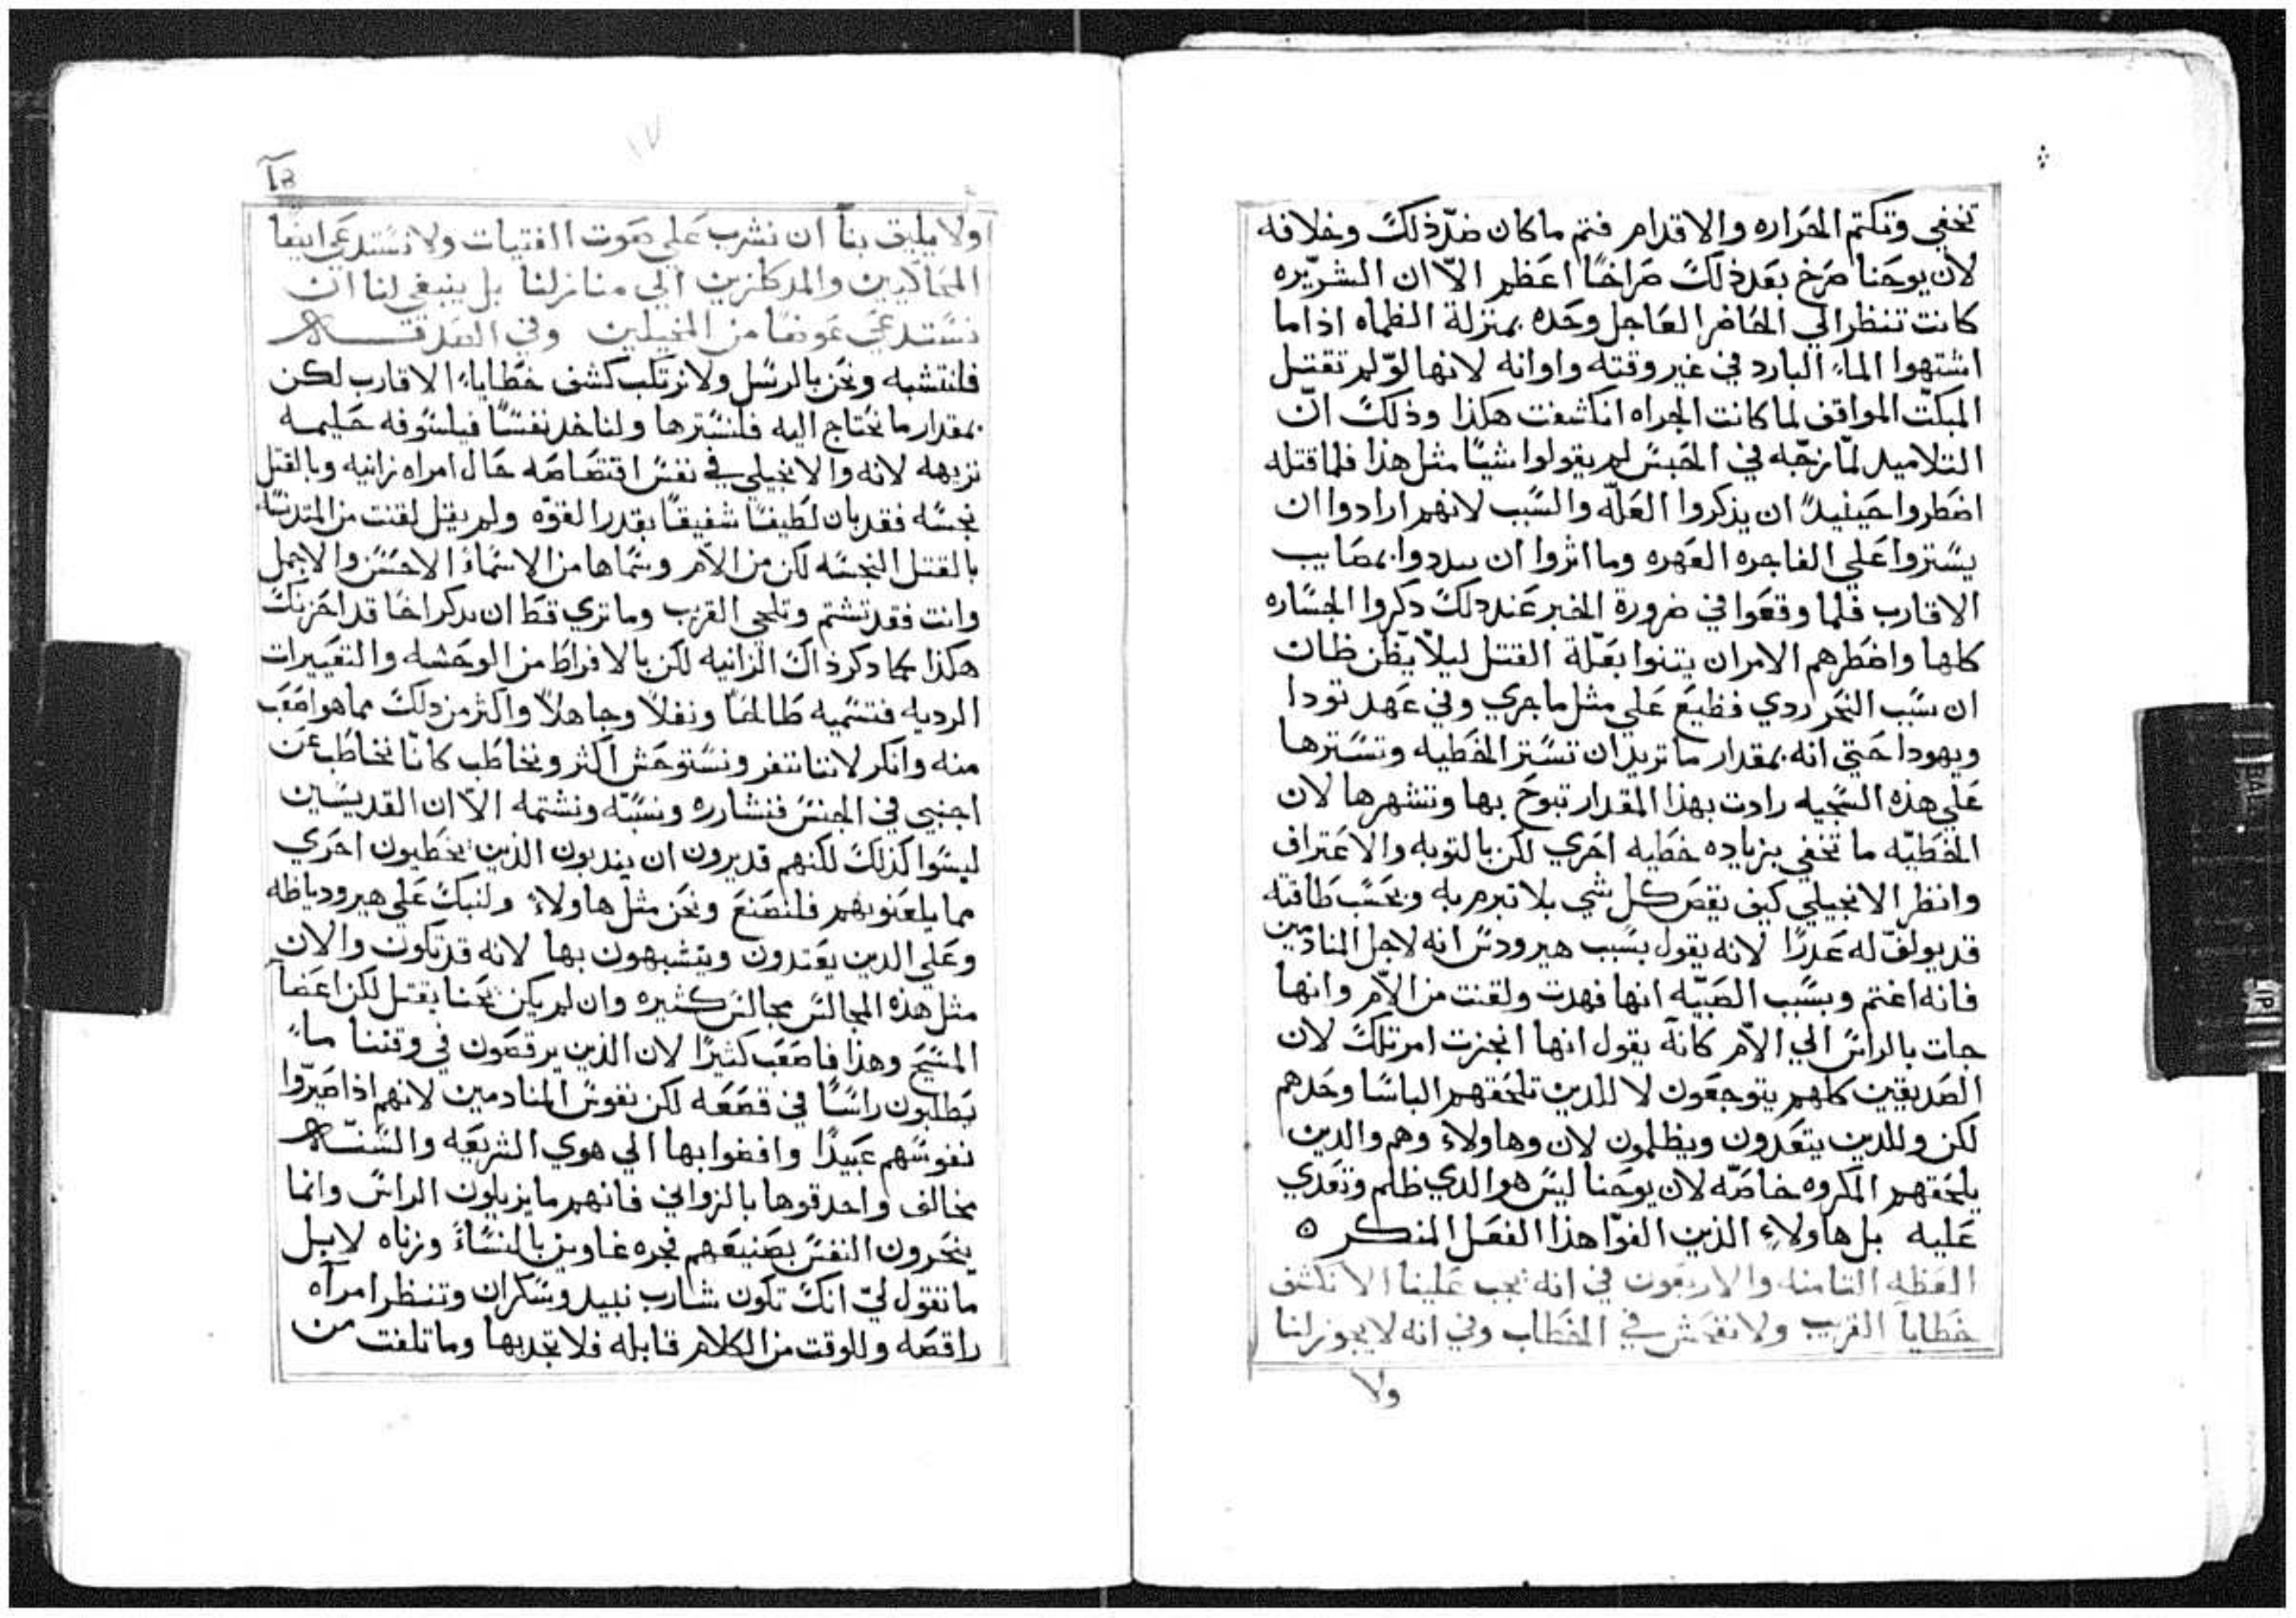 تخفي وتكتم الحراره والاقدام فتم ما كان ضدّ ذلك وخلافه
لان يوحنا صرخ بعد ذلك صراخًا اعظم الّا ان الشريّره
كانت تنظر الي الحاضر العاجل وحده بمنزلة الظماه اذا ما
اشتهوا الماء البارد في غير وقته واوانه لانها لوّ لم تقتل
المبكّت الموافق لما كانت الجراه انكشفت هكذا وذلك انّ
التلاميد لمّا زجّه في الحبس لم يقولوا شيًا مثل هذا فلما قتله
اضطروا حينيدً ان يذكروا العلّه والسبب لانهم ارادوا ان
يستروا علي الفاجره العهره وما اثروا ان يبددوا بمصايب
الاقارب فلما وقعوا في ضرورة الخبر عند دلك دكروا الجساره
كلها واضطرهم الامر ان يتنوا بعلّة القتل ليلا يظن ظان
ان سبب النحر ردي فظيع علي مثل ما جري وفي عهد تودا
ويهودا حتي انه بمقدار ما تريد ان تستر الخطيه وتسترها
علي هذه السجيه رادت بهذا المقدار تبوح بها وتشهرها لان
الخطيّه ما تخفي بزياده خطيه اخري لكن بالتوبه والاعتراف
وانظر الانجيلي كيف يقص كل شي بلا تبرم به وبحسب طاقته
قد يولف له عدرًا لانه يقول بسبب هيرودس انه لاجل المنادمين
فانه اغتم وبسبب الصبيّه انها فهدت ولقنت من الامّ وانها
جات بالراس الي الامّ كانه يقول انها انجزت امر تلك لان
الصديقين كلهم يتوجعون لا للدين تلحقهم الباسا وحدهم
لكن وللدين يتعدون ويظلمون لان وهاولاء وهم والدين
يلحقهم المكروه خاصّه لان يوحنا ليس هو الدي ظلم وتعدي
عليه بل هاولاءِ الذين الفوّا هذا الفعل المنكر ه
العظه التامنه والاربعون في انه يجب علينا الا نكشف
خطايا القريب ولا نفحش في الخطاب وفي انه لا يجوز لنا
ولا
ولا يليق بنا ان نشرب علي صوت الفتيات ولا نستدعي ايضا
المحالايين والمدكلزين الي منازلنا بل ينبغي لنا ان
نستدعي عوضا من المخيلين وفي الصدقه
فلنتشبه ونحن بالرسل ولا نرتكب كشف خطاياء الاقارب لكن
بمقدار ما نحتاج اليه فلنسترها ولناخد نفسًا فيلسوفه حليمه
نزيهه لانه والانجيلي في نفس اقتصاصه حال امراه زانيه وبالقتل
نجسه فقد بان لطيفًا شفيقًا بقدر القوّه ولم يقل لقنت من المتدنسه
بالقتل النجسه لكن من الام وسماها من الاسماء الاحسن والاجمل
وانت فقد تشتم وتلحي القرب وما تري قط ان يدكر اخا قد احزنك
هكذا كما دكر ذاك الزانيه لكن بالافراط من الوحشه والتعييرات
الرديه فتسميه طالحًا ونغلًا وجاهلًا واكثر من دلك مما هو اصعب
منه وانكر لاننا نتنفر ونستوحش اكثر ونخاطب كانّا نخاطب عن
اجنبي في الجنس فنشارره ونسبّه ونشتمه الّا ان القديسين
ليسوا كذلك لكنهم قديرون ان يندبون الذين يخطيون احري
مما يلعنونهم فلنصنع ونحن مثل هاولاء ولنبك علي هيروديا ظه
وعلي الدين يقتدون ويتشبهون بها لانه قد تكون والان
مثل هذه المجالس مجالس كثيره وان لم يكن يحنا يقتل لكن اعضا
المسيح وهذا فاصعب كثيرًا لان الذين يرقصون في وقتنا ما
يطلبون راسًا في قصعه لكن نفوس المنادمين لانهم اذا صيرّوا
نفوسهم عبيدًا وافضوا بها الي هوي الشريعه والسنّه
مخالف واحدقوها بالزواني فانهم ما يزيلون الراس وانما
ينحرون النفس بصنيعهم فجره غاوين بالنساء وزناه لا بل
ما تقول لي انك تكون شارب نبيد وسكران وتنظر امراه
راقصه وللوقت من الكلام قابله فلا تجدبها وما تلفت من